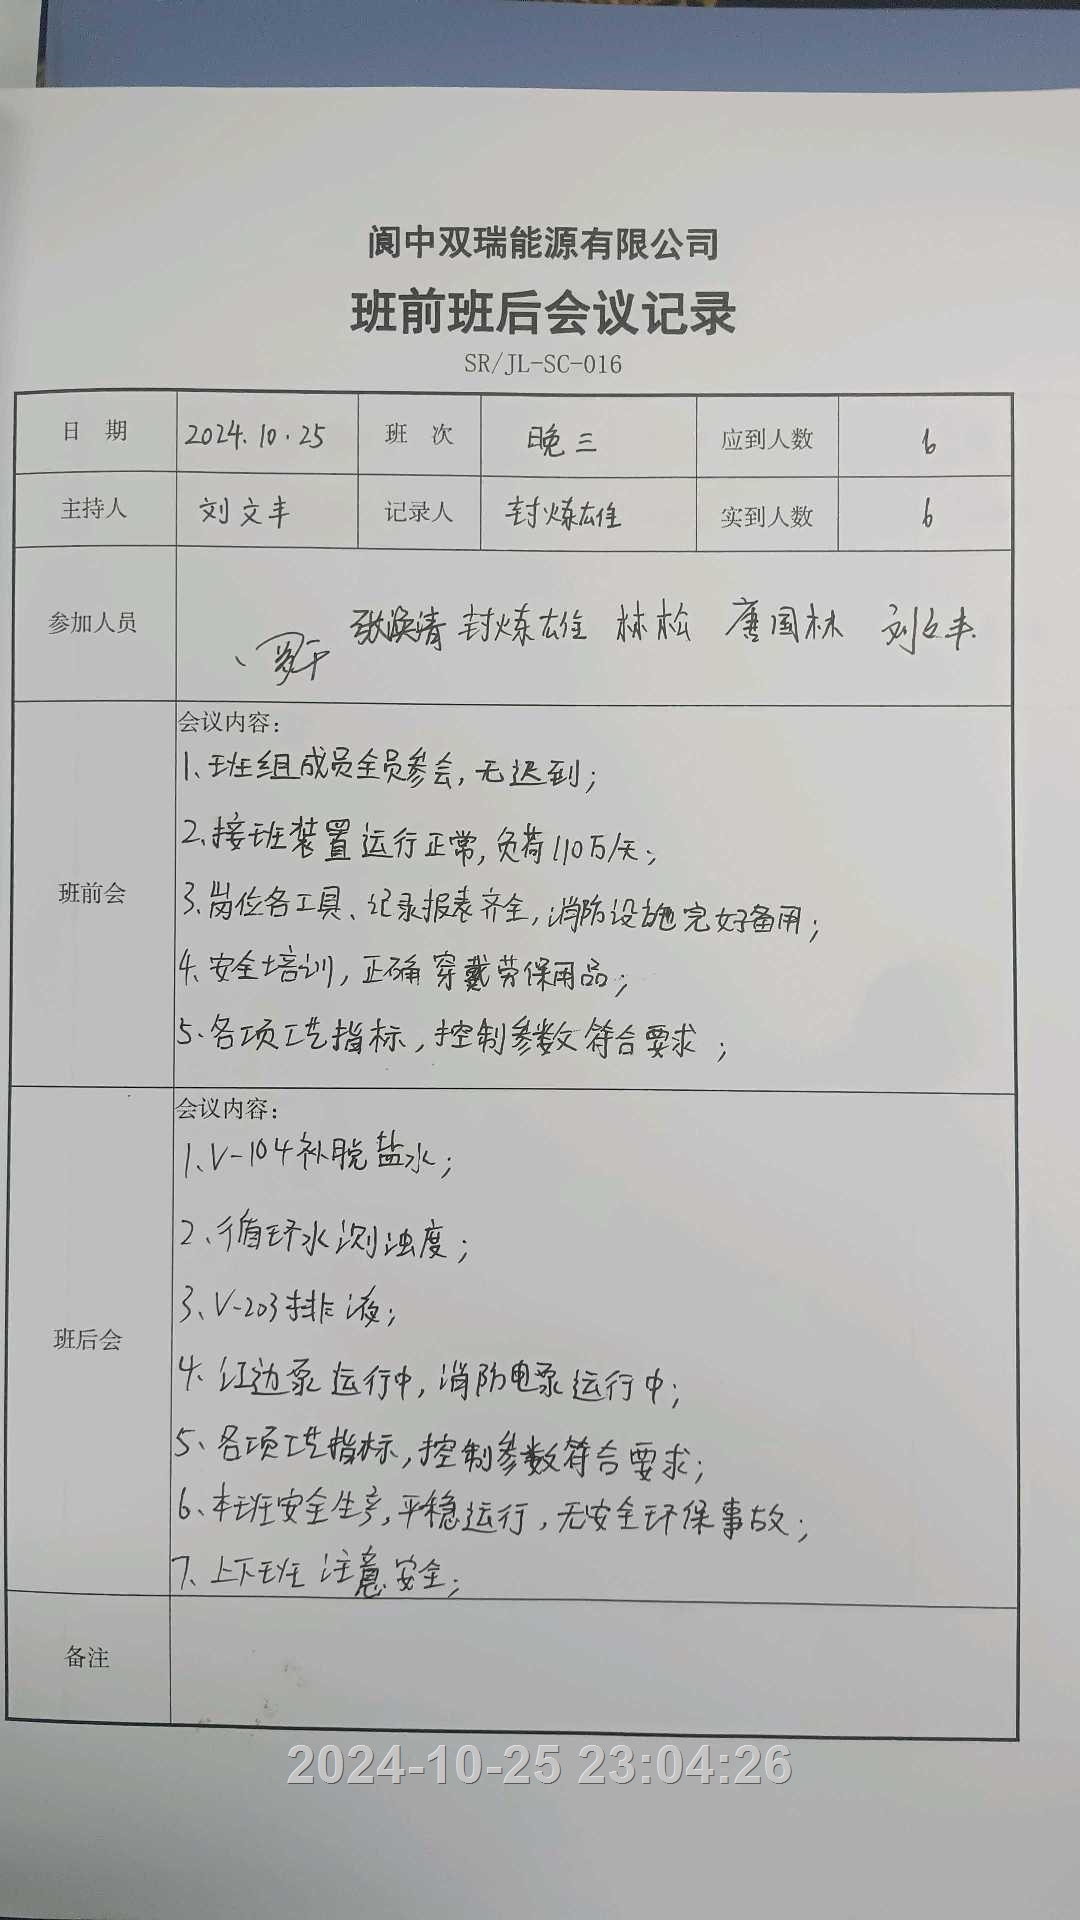 阆中双瑞能源有限公司
班前班后会议记录
SR/JL-SC-016
日 期 2024.10.25 班 次 晚三 应到人数 6
主持人 刘文丰 记录人 封炼雄 实到人数 6
参加人员 张焕清 封炼雄 林松 唐国林 刘文丰
会议内容：
1、班组成员全员参会，无迟到；
2、接班装置运行正常，负荷110万/天；
班前会
3、岗位各工具、记录报表齐全，消防设施完好备用；
4、安全培训，正确穿戴劳保用品；
5、各项工艺指标，控制参数符合要求；
会议内容：
1、V-104补脱盐水；
2、循环水测浊度；
3、V-203排液；
班后会
4、江边泵运行中，消防电泵运行中；
5、各项工艺指标，控制参数符合要求；
6、本班安全生产，平稳运行，无安全环保事故；
7、上下班注意安全；
备注
2024-10-25 23:04:26